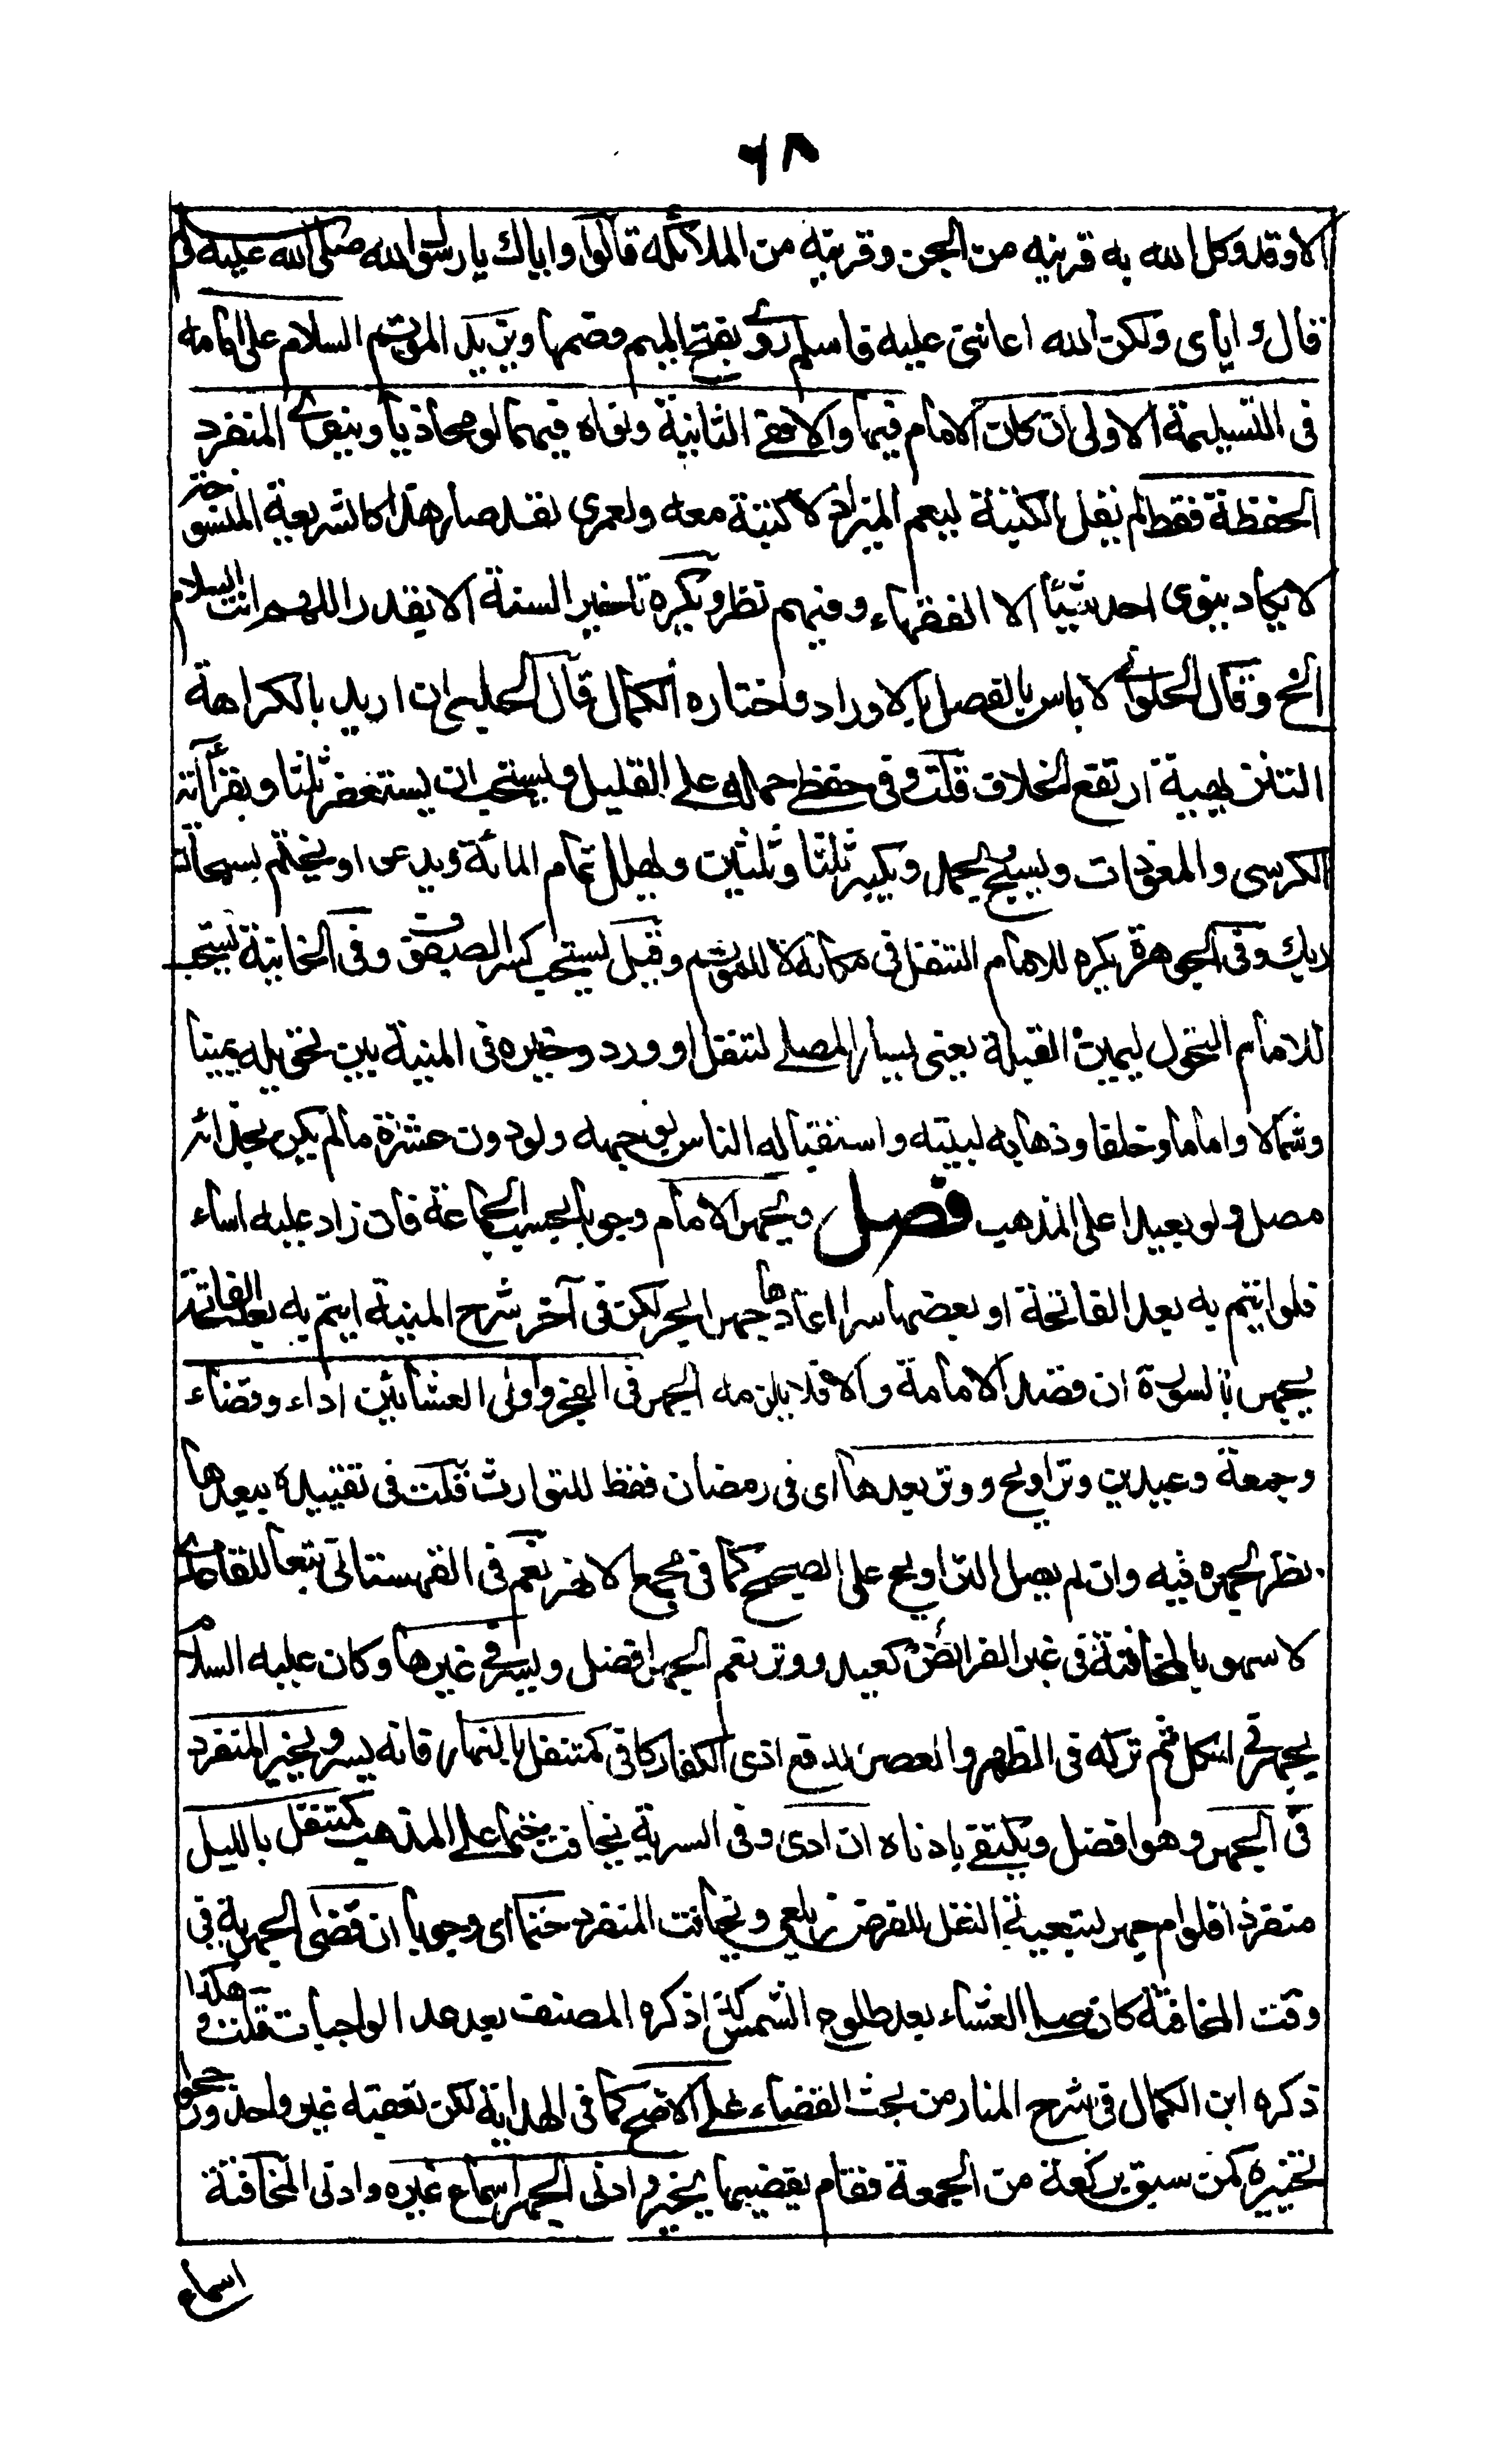 ٦٨
الا وقد وكل الله به قرينه من الجن وقرينه من الملائكة قالوا واياك يا رسول الله صلى الله عليه
قال واياى ولكن الله اعاننى عليه فاسلم روى بفتح الميم وضمها ويزيد المؤتم السلام على امامه
فى التسليمة الاولى ان كان الامام فيها والا ففى الثانية ونواه فيهما لو محاذيا وينوى المنفرد
الحفظة فقط لم يقل الكتبة ليعم المميز اذ لا كتبة معه ولعمرى لقد صار هذا كالشريعة المنسوخة
لا يكاد ينوى احد شيئا الا الفقهاء وفيهم نظر ويكره تاخير السنة الا بقدر اللهم انت السلام
الخ وقال الحلوانى لا باس بالفصل بالاوراد واختاره الكمال قال الحلبى ان اريد بالكراهة
التنزيهية ارتفع الخلاف قلت وفى حفظى حمله على القليل ويستحب ان يستغفر ثلثا ويقرأ آية
الكرسى والمعوذات ويسبح يحمد ويكبر ثلثا وثلثين ويهلل تمام المائة ويدعى ويختم بسبحان
ربك وفى الجوهرة يكره للامام التنفل فى مكانه لا للمؤتم وقيل يستحب كسر الصفوف وفى الخانية يستحب
للامام التحول ليمين القبلة يعنى يسار المصلى لتنفل او ورد وخيره فى المنية بين تحويله يمينا
وشمالا واماما وخلفا وذهابه لبيته واستقباله الناس بوجهه ولو دون عشرة ما لم يكن بحذائه
مصل ولو بعيدا على المذهب فصل ويجهر الامام وجوبا بحسب الجماعة فان زاد عليه اساء
فلو ائتم به بعد الفاتحة او بعضها سرا اعادها جهرا بحر لكن فى آخر شرح المنية ائتم به بعد الفاتحة
يجهر بالسورة ان قصد الامامة والا فلا يلزمه الجهر فى الفجر واولى العشائين اداء وقضاء
وجمعة وعيدين وتراويح ووتر بعدها اى فى رمضان فقط للتوارث قلت فى تقييده ببعدها
نظر لجهره فيه وان لم يصل التراويح على الصحيح كما فى مجمع الانهر نعم فى القهستانى تبعا للقاعدى
لا سهو بالمخافتة فى غير الفرائض كعيد ووتر نعم الجهر افضل ويسر فى غيرها وكان عليه السلام
يجهر فى الكل ثم تركه فى الظهر والعصر لدفع اذى الكفار كافى كمتنفل بالنهار فانه يسر ويخير المنفرد
فى الجهر وهو افضل ويكتفى بادناه ان ادى وفى السرية يخافت حتما على المذهب كمتنفل بالليل
منفردا فلو ام جهر لتبعية النفل للفرض زيلعى ويخافت المنفرد حتما اى وجوبا ان قضى الجهرية فى
وقت المخافتة كان صلى العشاء بعد طلوع الشمس كذا ذكره المصنف بعد عد الواجبات قلت وهكذا
ذكره ابن الكمال فى شرح المنار من بحث القضاء على الاصح كما فى الهداية لكن تعقبه غير واحد ورجحوا
تخييره كمن سبق بركعة من الجمعة فقام يقضيها يخير وادنى الجهر اسماع غيره وادنى المخافتة
اسماع